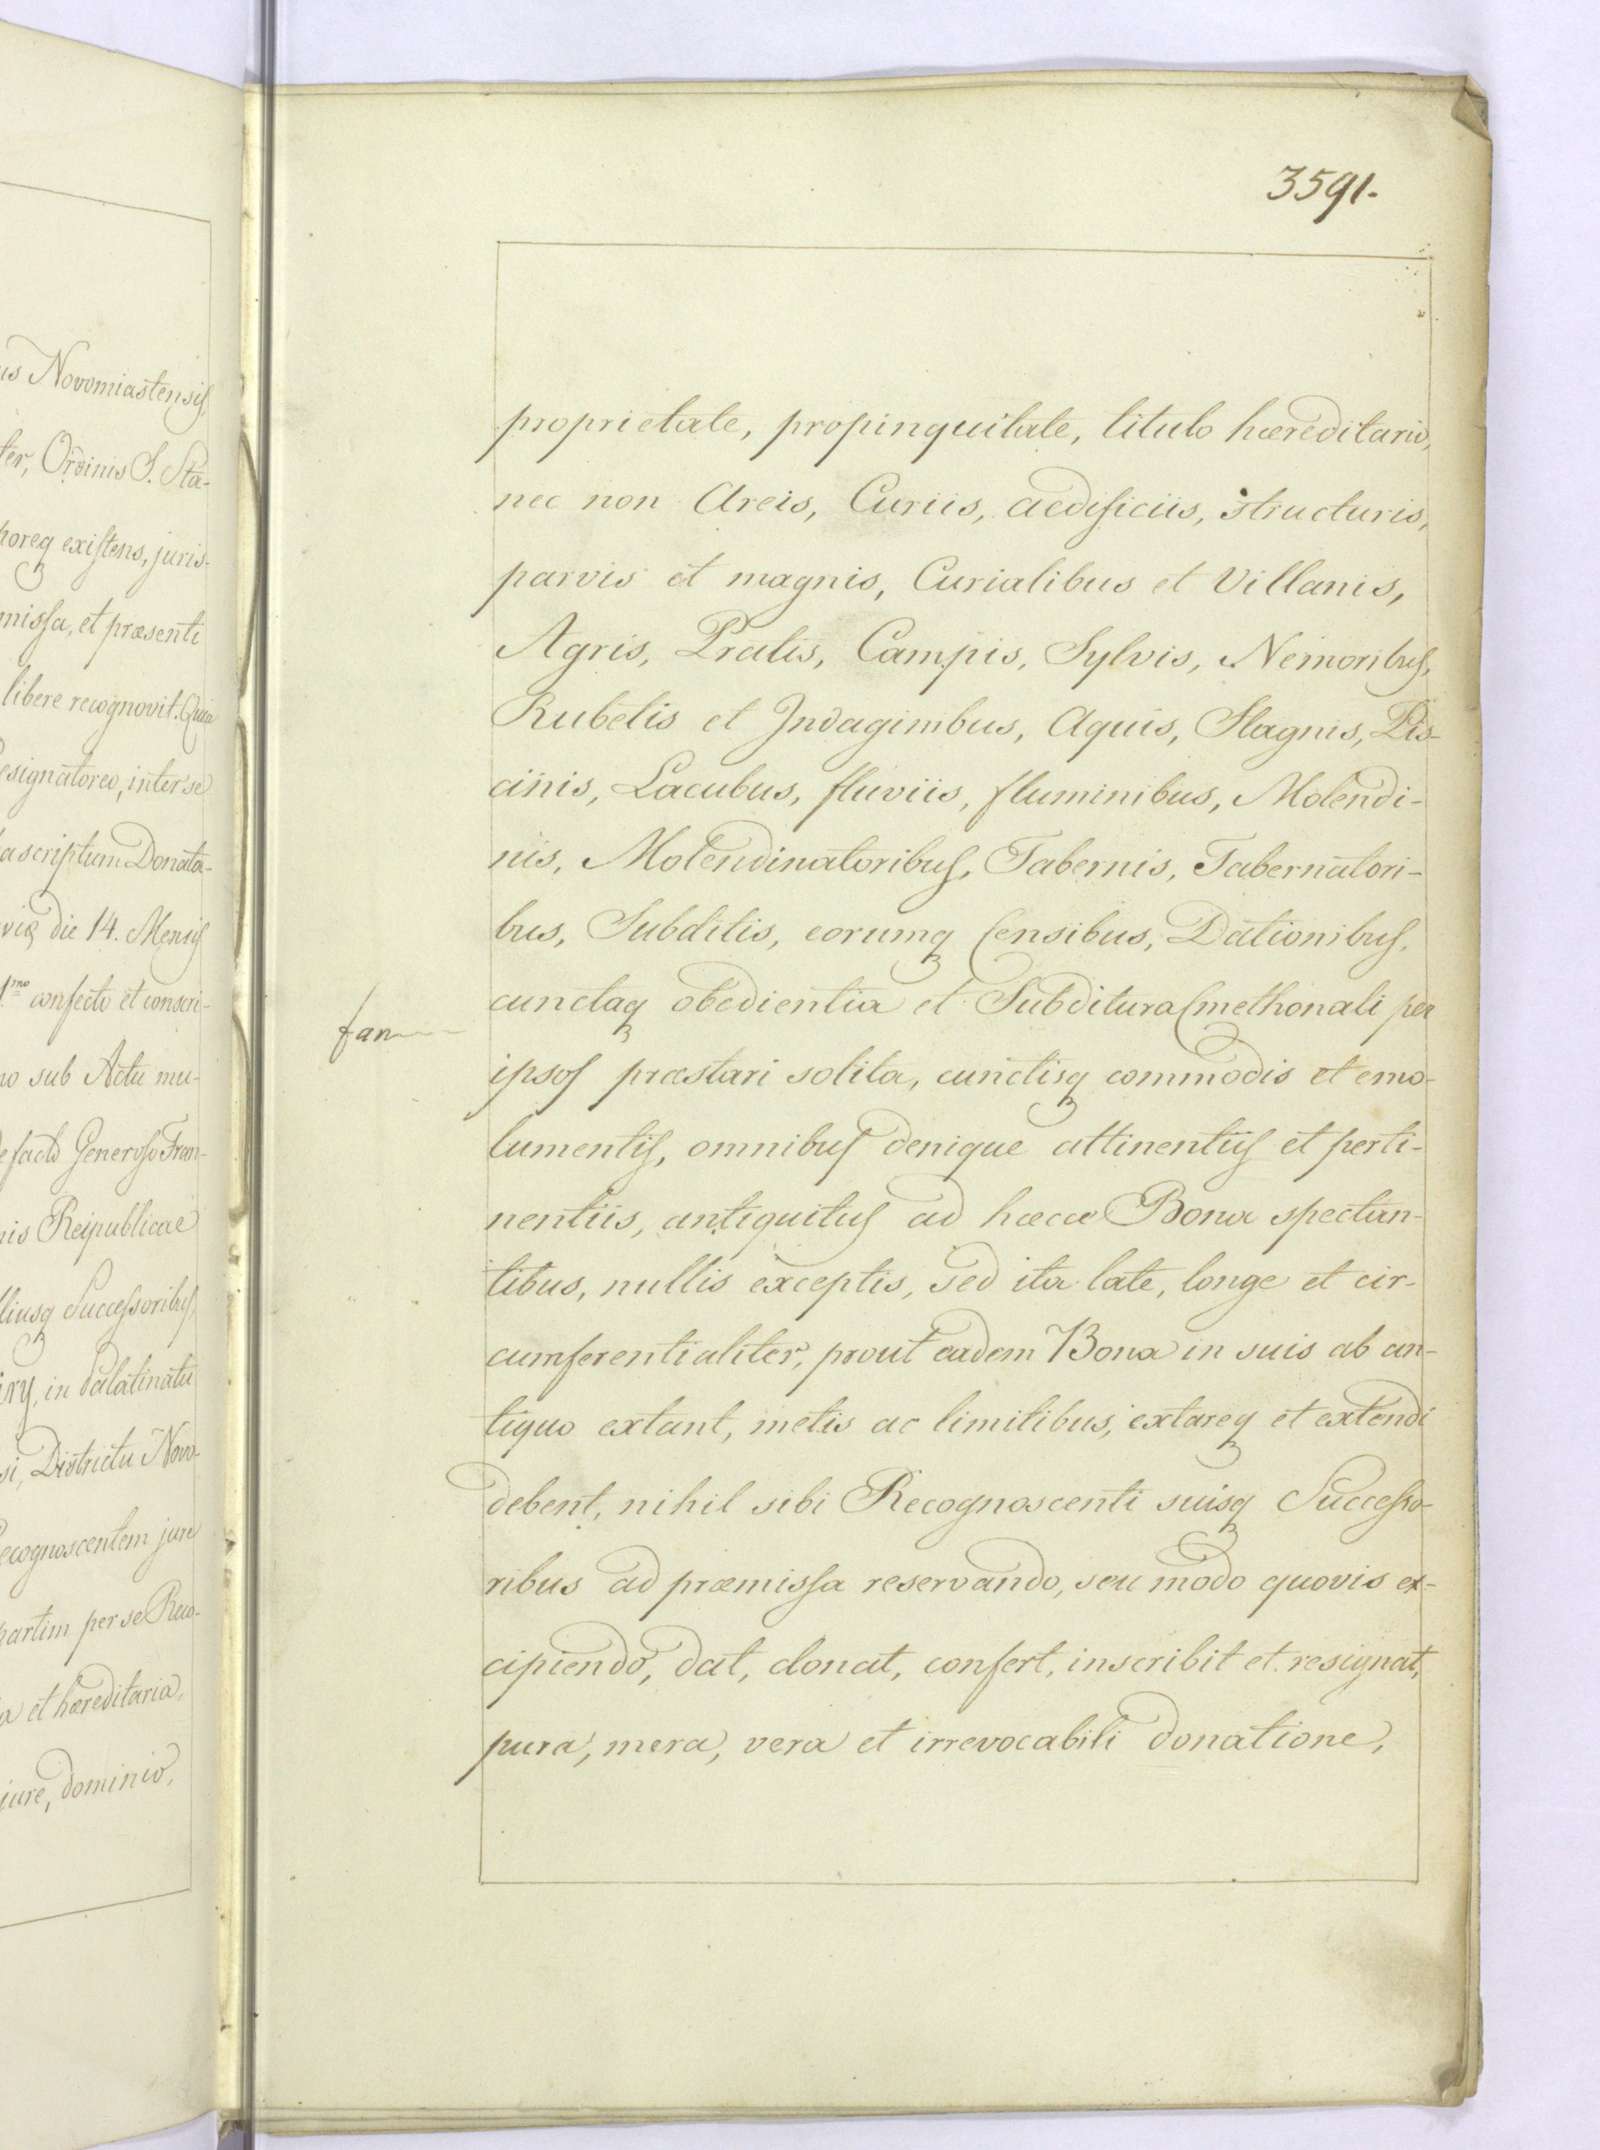 us Novomiastensis,
ter, Ordinis S. Sta-
poreq existens, juris-
missa, et præsenti
libere recognovit. Quia
esignatores, inter se
ascriptum Donata-
die 14. Mensis
1mo confecto et conscri-
no sub Actu mu-
facto Generoso Fran-
nis Reipublicae
liusq Successoribus
in Palatinatu
si, Districtu Novo-
ecognoscentem jure
partim per se Reco-
a et hæreditaria,
jure, dominio,
3591.
proprietate, propinquitate, titulo hæreditario,
nec non Areis, Curiis, aedificiis, structuris,
parvis et magnis, Curialibus et Villanis,
Agris, Pratis, Campis, Sylvis, Nemoribus,
Rubetis et Indaginibus, Aquis, Stagnis, Pis-
cinis, Lacubus, fluviis, fluminibus, Molendi-
nis, Molendinatoribus, Tabernis, Tabernatori-
bus, Subditis, eorumq Censibus, Dationibus,
cunctaq obedientia et Subditura Cmethonali per
ipsos præstari solita, cunctisq commodis et emo-
lumentis, omnibus denique attinentiis et perti-
nentiis, antiquitus ad hæcce Bona spectan-
tibus, nullis exceptis, sed ita late, longe et cir-
cumferentialiter, prout eadem Bona in suis ab an-
tiquo extant, metis ac limitibus, extareq et extendi
debent, nihil sibi Recognoscenti suisq Successo-
ribus ad præmissa reservando, seu modo quovis ex-
cipiendo, dat, donat, confert, inscribit et resignat,
pura, mera, vera et irrevocabili donatione,